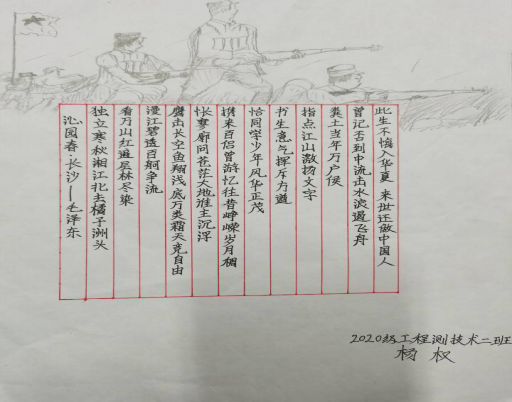 沁园春·长沙——毛泽东
独立寒秋湘江北去橘子洲头
看万山红遍层林尽染
漫江碧透百舸争流
鹰击长空鱼翔浅底万类霜天竞自由
怅寥廓问苍茫大地谁主沉浮
携来百侣曾游忆往昔峥嵘岁月稠
恰同学少年风华正茂
书生意气挥斥方遒
指点江山激扬文字
粪土当年万户侯
曾记否到中流击水浪遏飞舟
此生不悔入华夏 来世还做中国人
2020级工程测技术二班
杨权